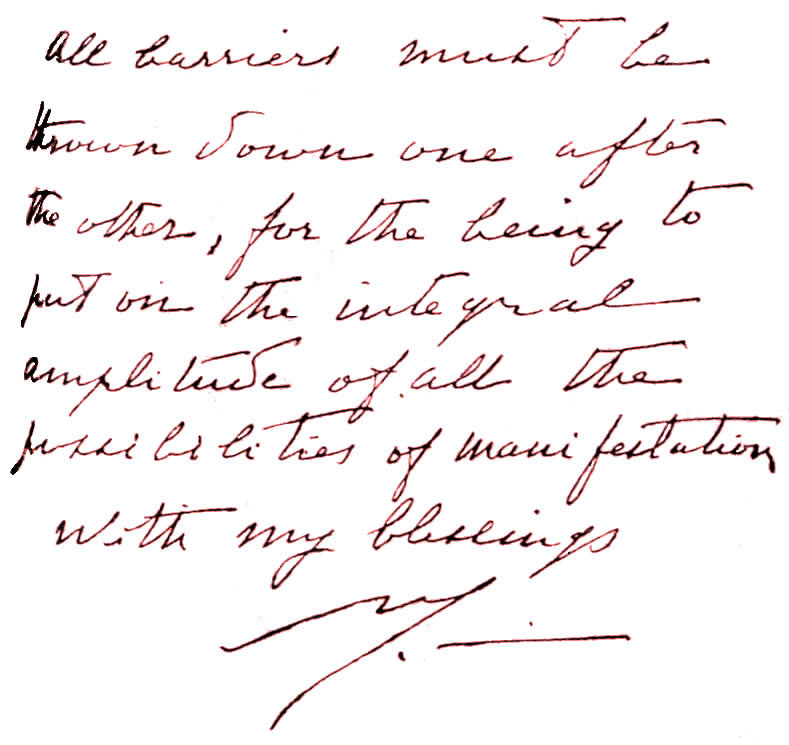 all barriers must be
thrown down one after
the other, for the being to
put on the integral
amplitude of all the
possibilities of manifestation
with my blessings